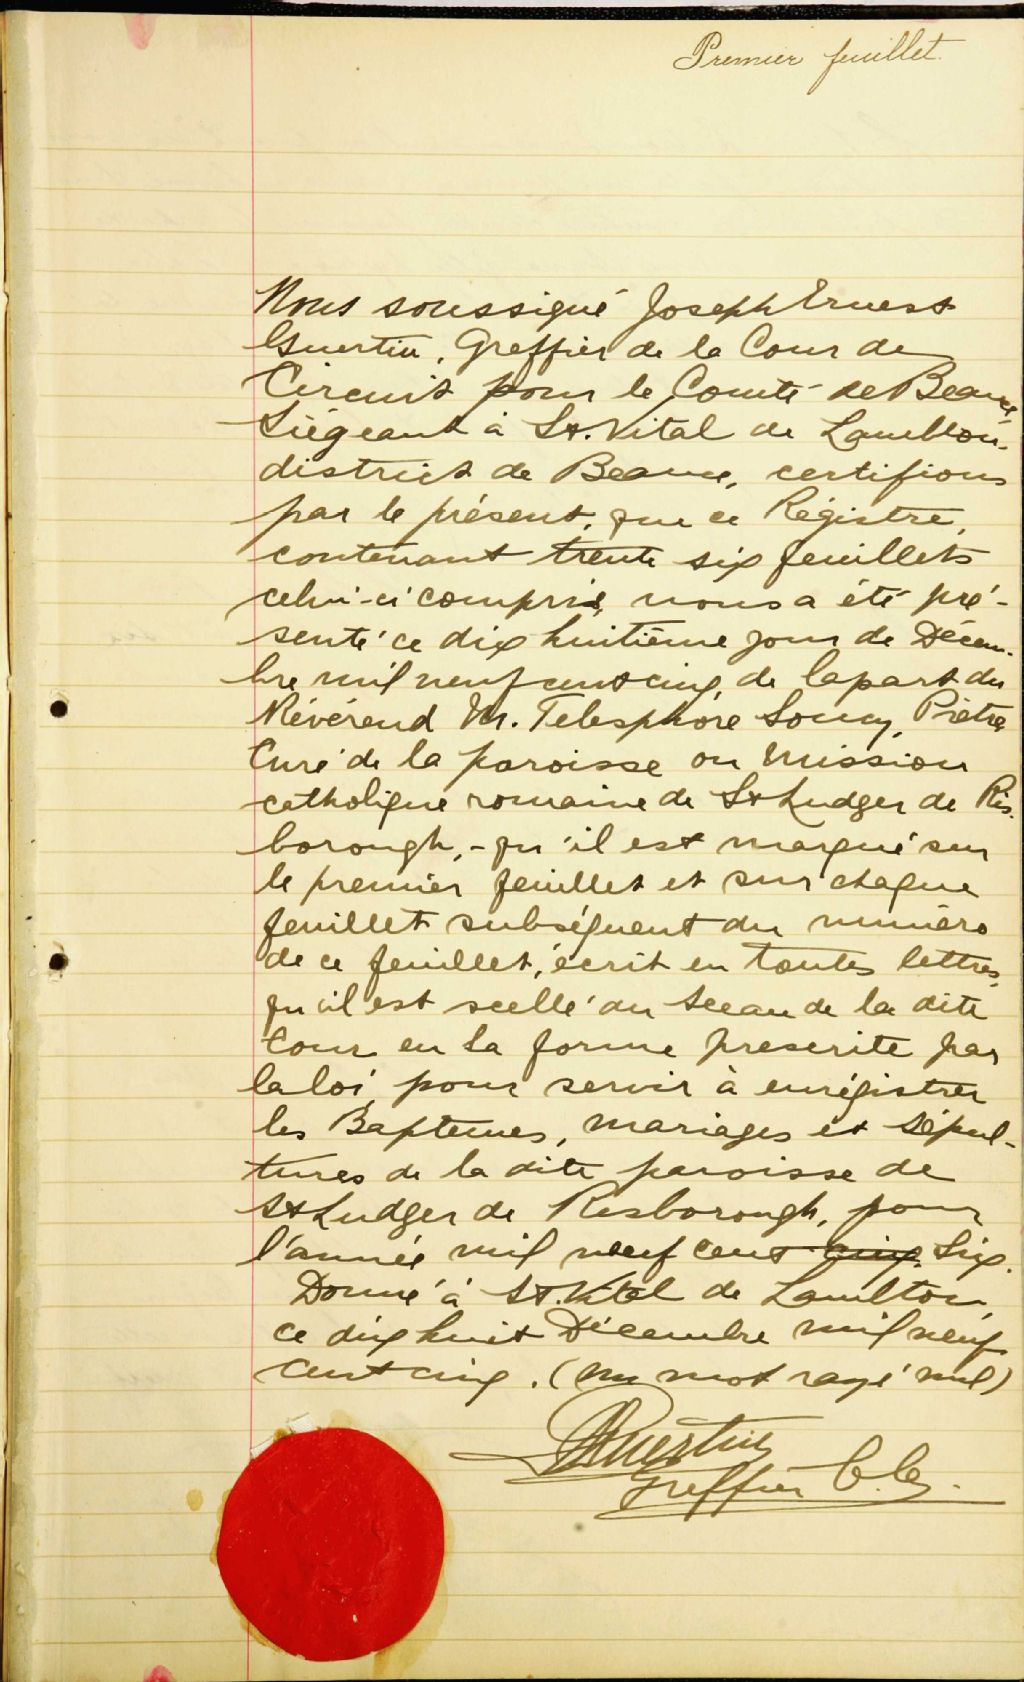 Premier feuillet.
Nous soussigné Joseph Ernest
Guertin, Greffier de la Cour de
Circuit pour le Comté de Beauce,
Siégeant à St. Vital de Lambton,
district de Beauce, certifions
par le présent, que ce Régistre,
contenant trente six feuillets
celui-ci compris, nous a été pré-
senté ce dix huitième jour de Décem-
bre mil neuf cent cinq, de la part du
Révérend Mr. Telesphore Soucy, Prêtre
Curé de la paroisse ou mission
catholique romaine de St Ludger de Ris-
borough, - qu'il est marqué sur
le premier feuillet et sur chaque
feuillet subséquent du numéro
de ce feuillet, écrit en toutes lettres,
qu'il est scellé du Sceau de la dite
Cour en la forme prescrite par
la loi, pour servir à enrégistrer
les Baptemes, mariages et Sépul-
tures de la dite paroisse de
St Ludger de Risborough, pour
l'année mil neuf cent cinq Six.
Donné à St. Vital de Lambton,
ce dix huit Décembre mil neuf
cent cinq. (un mot rayé nul)
JEGuertin
Greffier C.C.